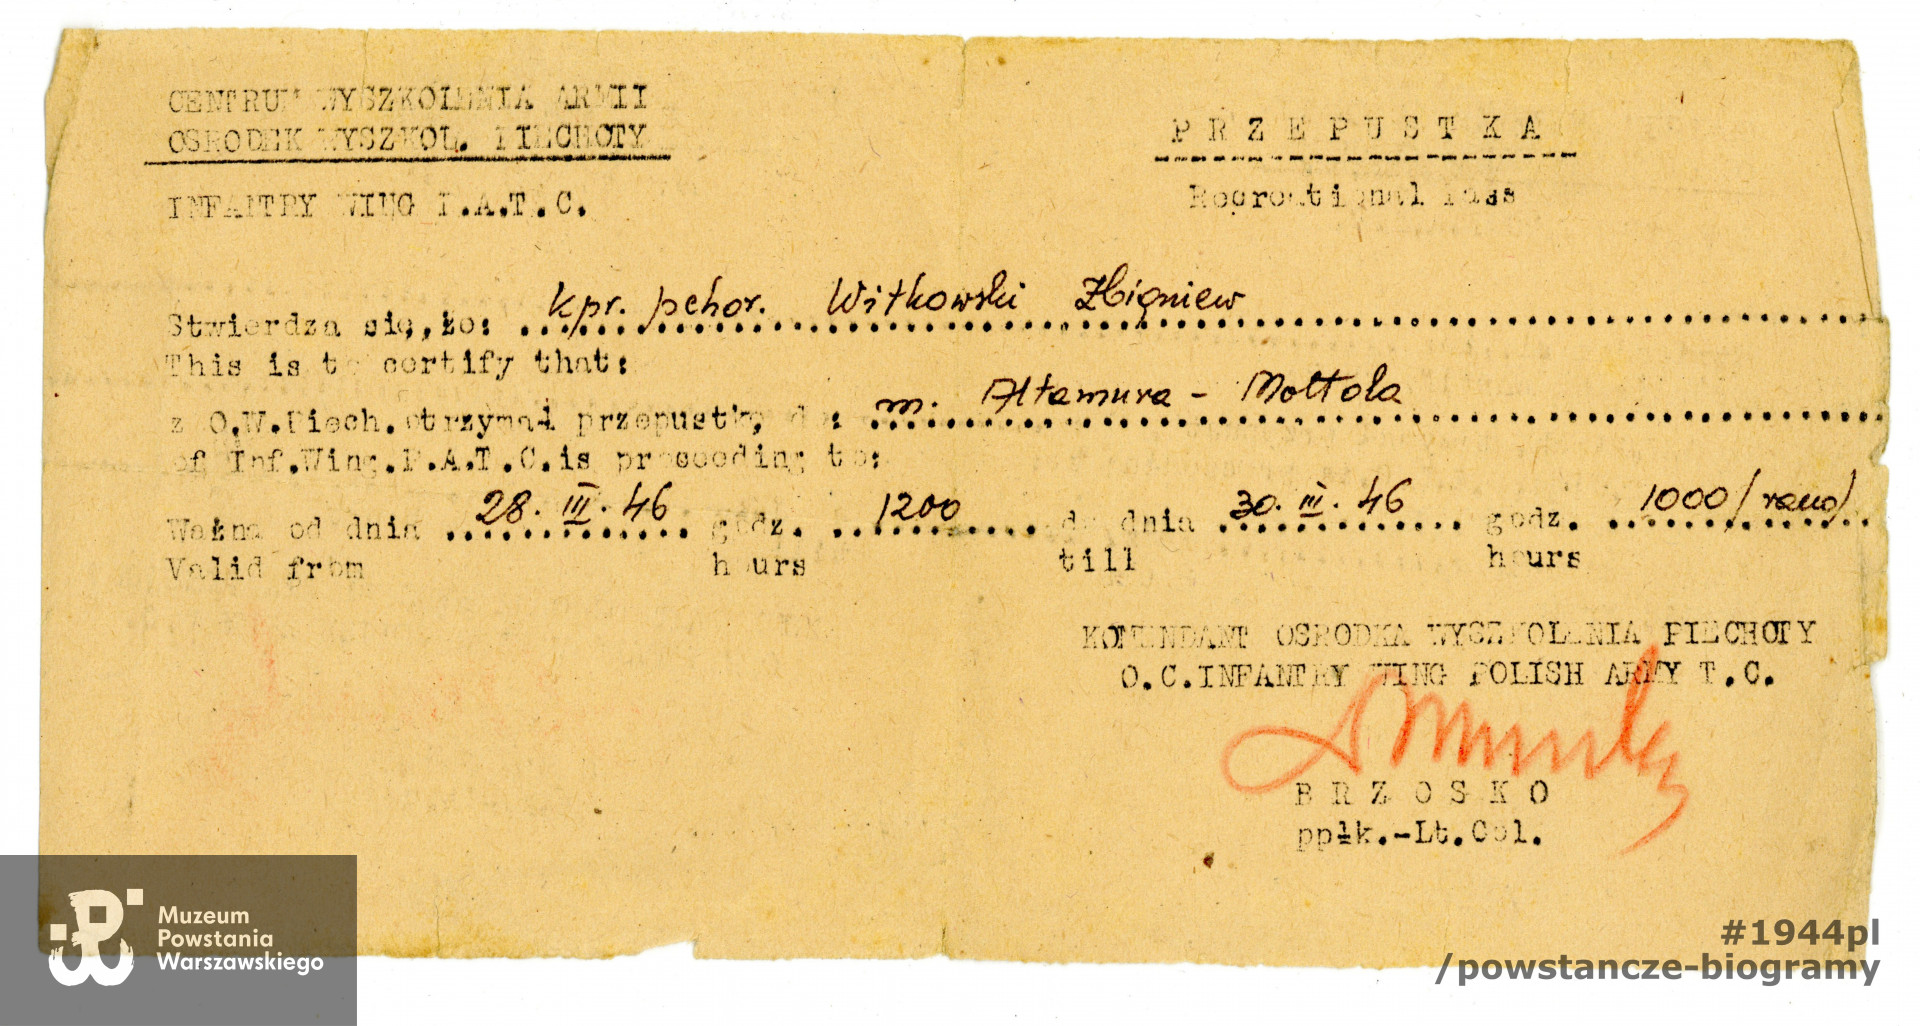 CENTRUM WYSZKOLENIA ARMII
OSRODEK WYSZKOL. PIECHOTY
INFANTRY WING P.A.T.C.
PRZEPUSTKA
Recreational Pass
Stwierdza się, że: kpr. pchor. Witkowski Zbigniew
This is to certify that:
z O.W.Piech.otrzymał przepustkę do: m. Altamura - Mottola
of Inf.Wing.P.A.T.C.is proceeding to:
Ważna od dnia 28. III. 46 godz. 1200 do dnia 30. III. 46 godz. 1000 /rano/
Valid from hours till hours
KOMENDANT OSRODKA WYSZKOLENIA PIECHOTY
O.C.INFANTRY WING POLISH ARMY T.C.
BRZOSKO
ppłk.-Lt.Col.
Muzeum
Powstania
Warszawskiego
#1944pl
/powstancze-biogramy